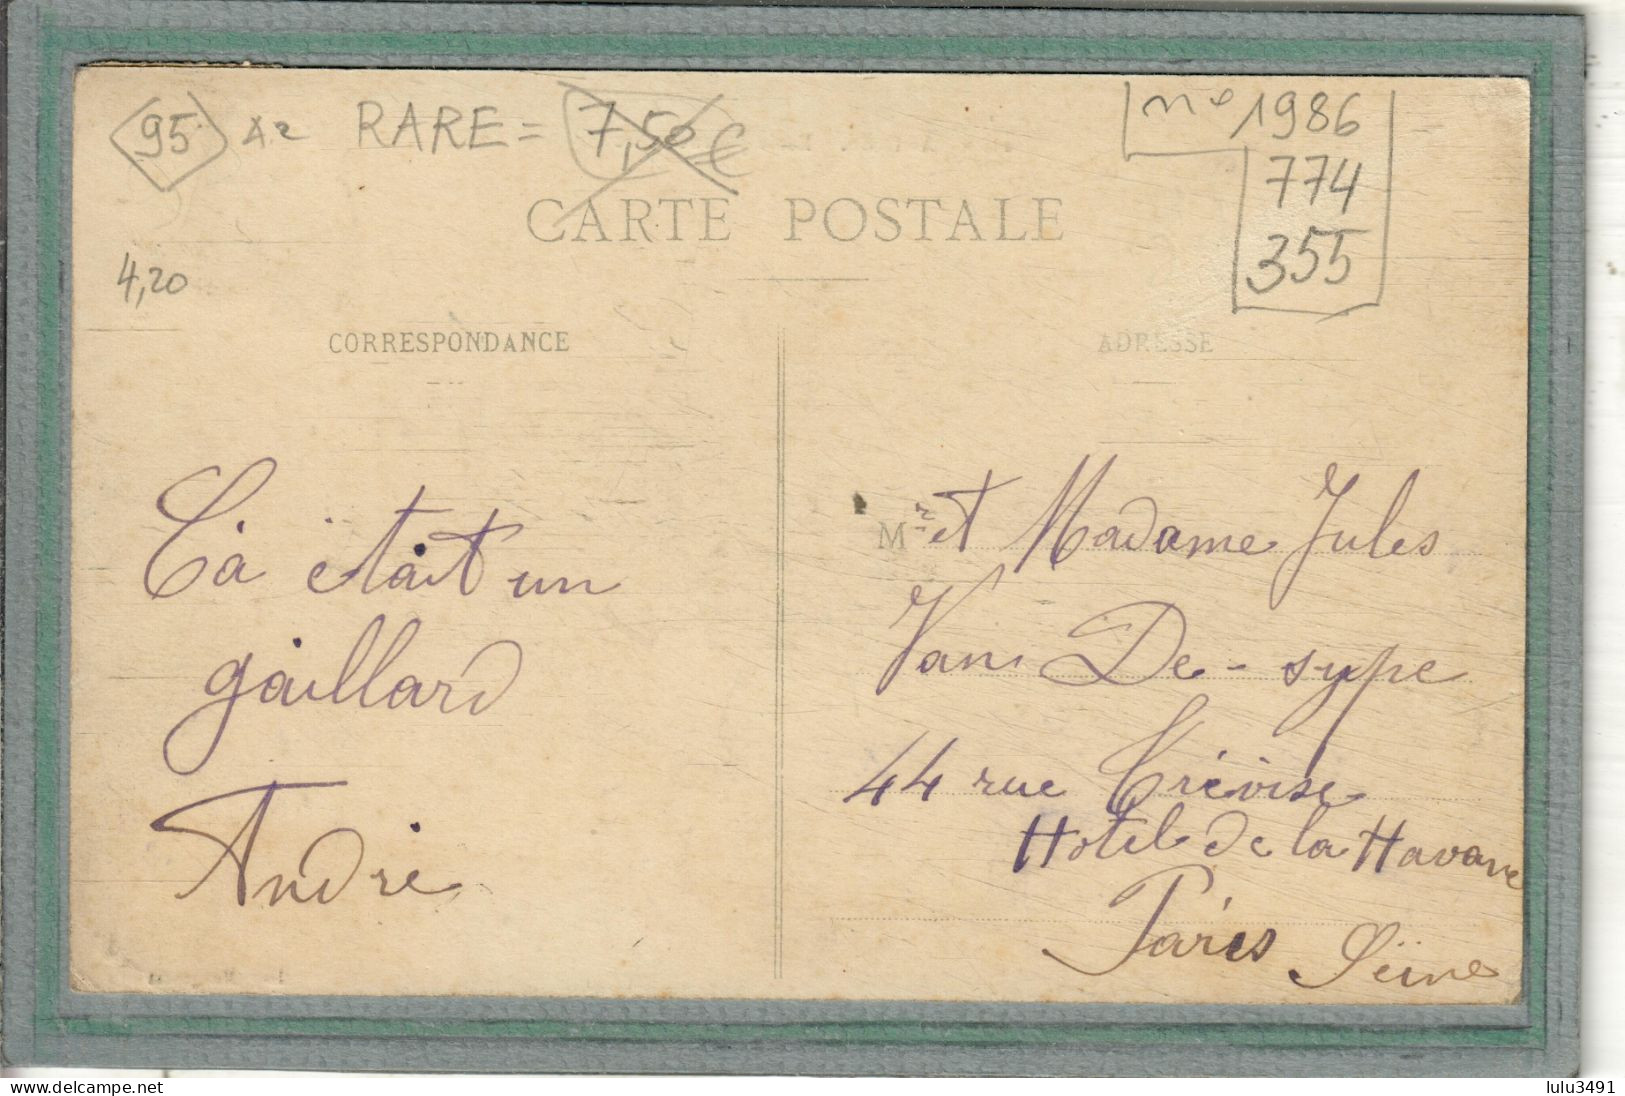 95 A2 RARE = 7,50 €
n° 1986
774
355
CARTE POSTALE
4,20
CORRESPONDANCE
ADRESSE
Cà était un
gaillard
André
Mr et Madame Jules
Van De-sype
44 rue Trévise
Hotel de la Havane
Paris Seine
www.delcampe.net
lulu3491